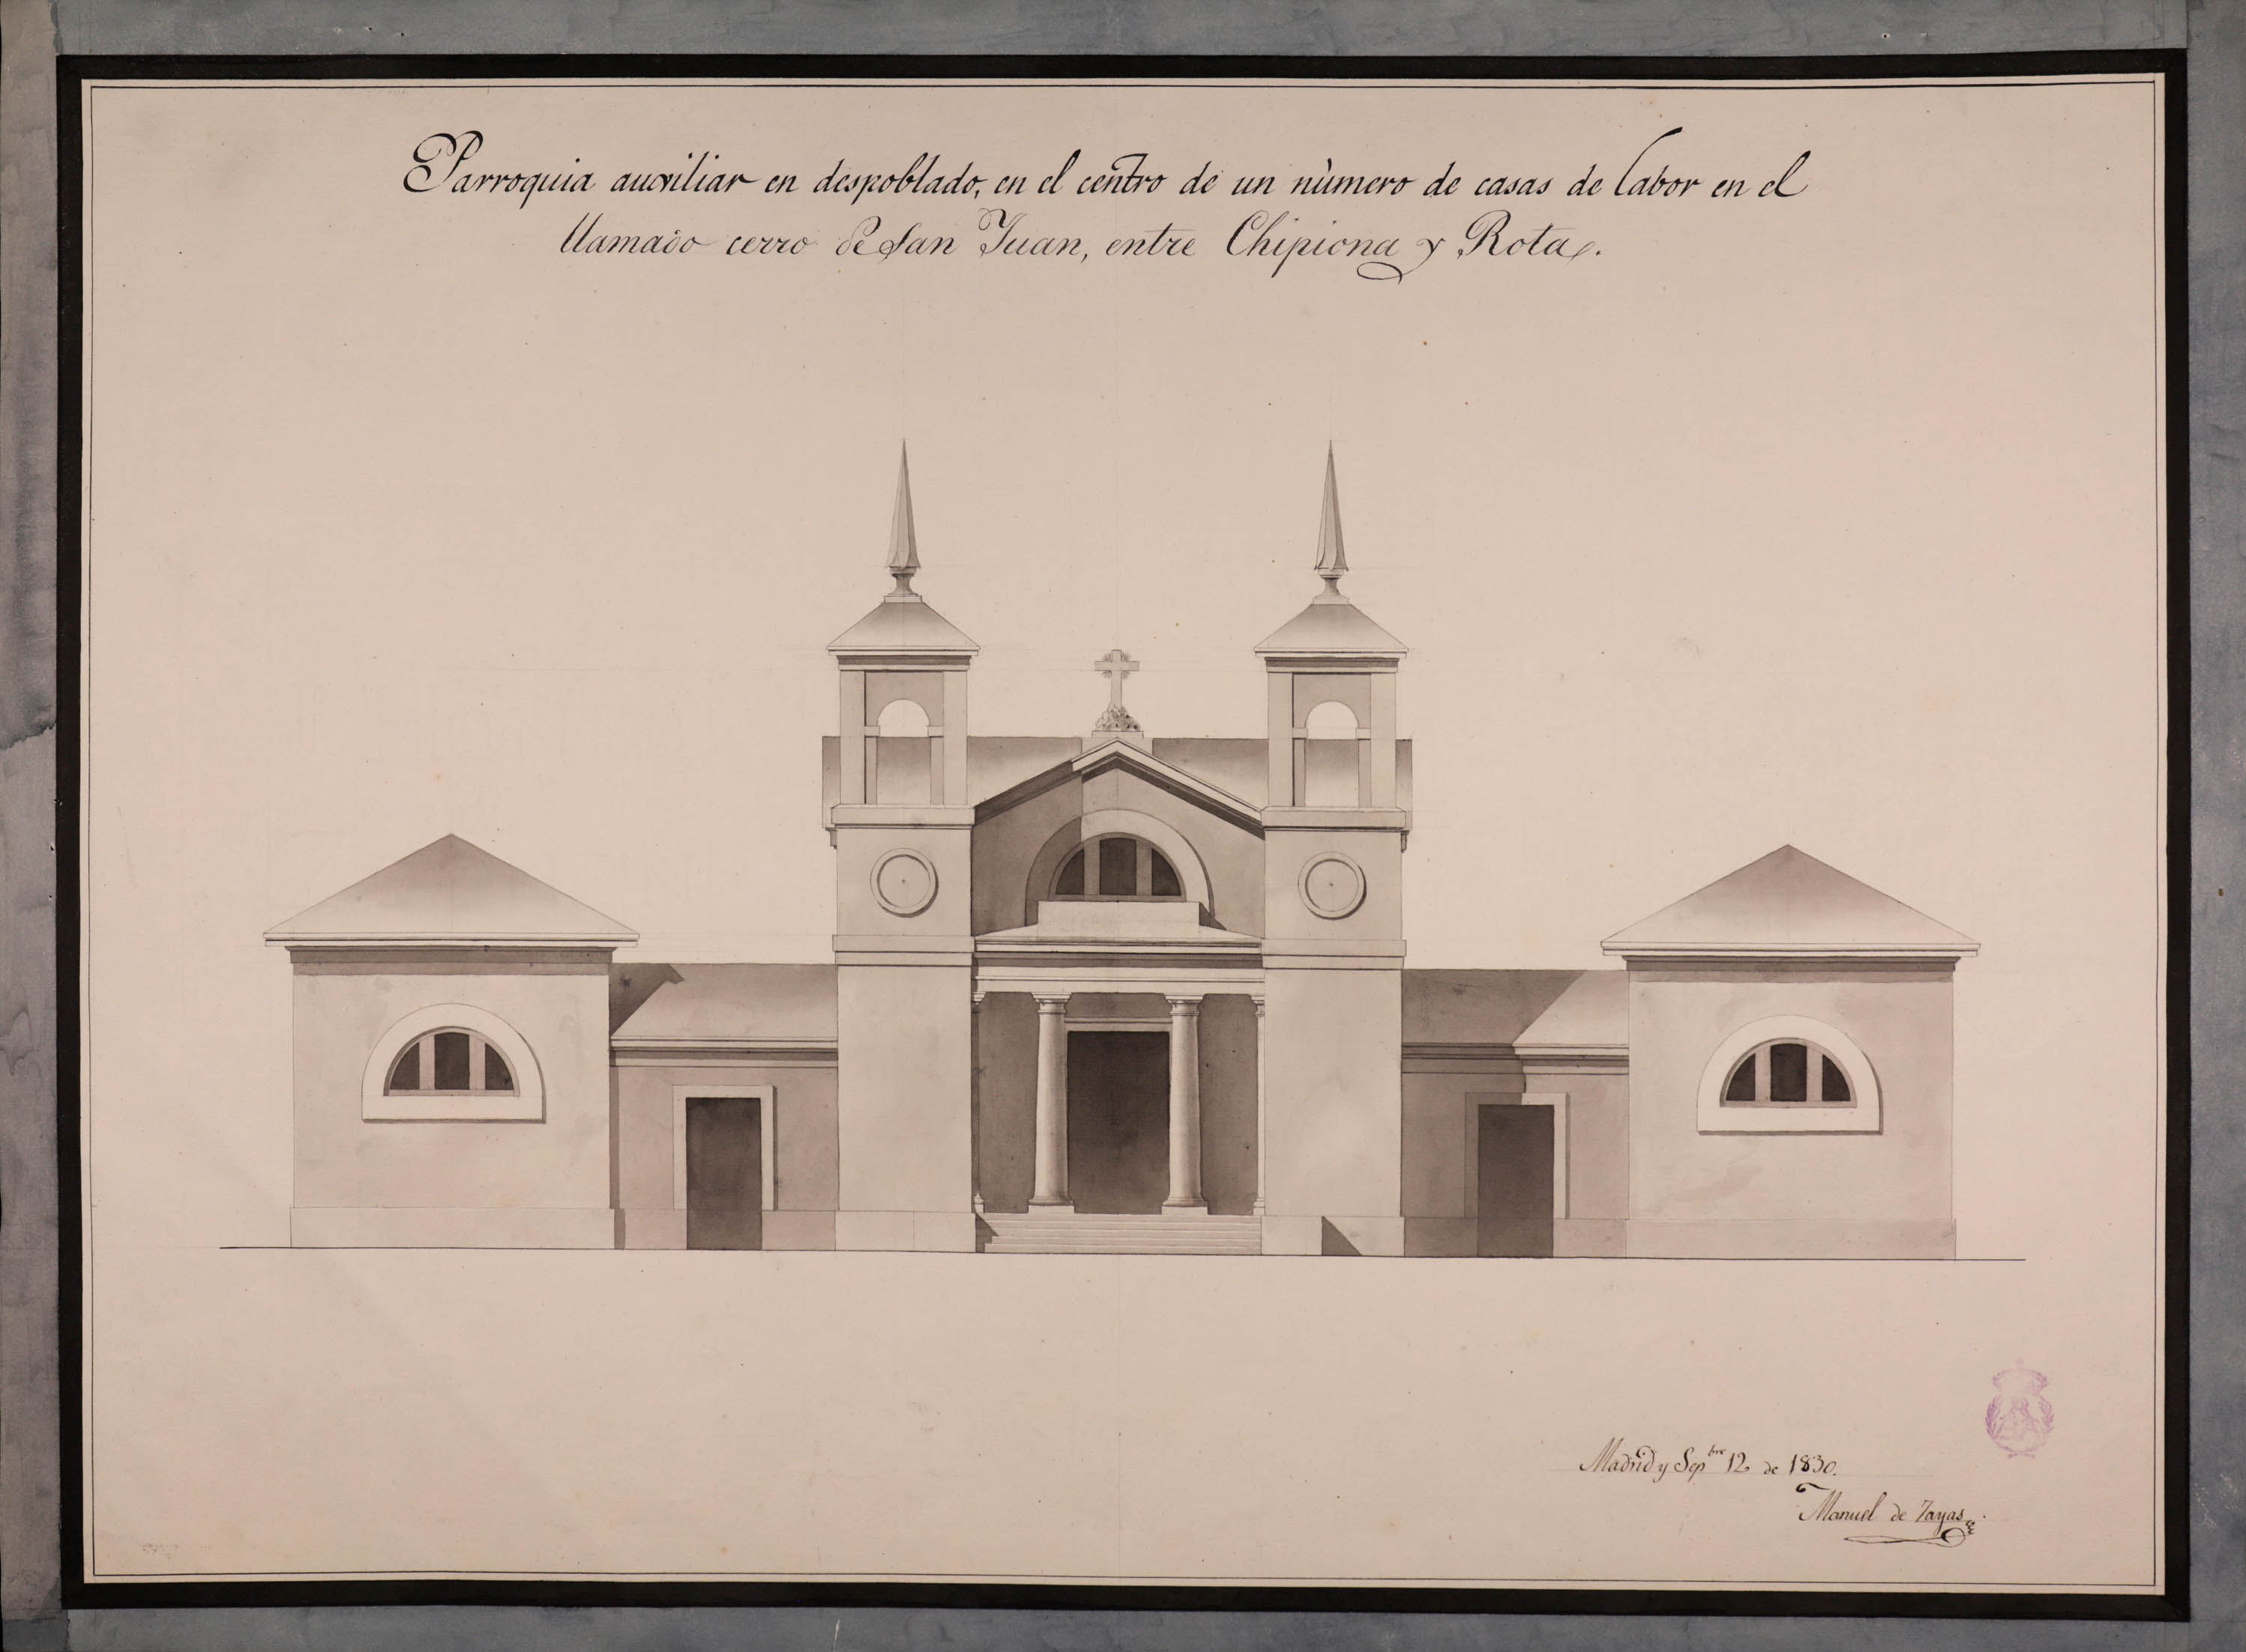 Parroquia auxiliar en despoblado, en el centro de un nùmero de casas de labor en el
llamado cerro de San Juan, entre Chipiona y Rota.
Madrid y Sep.bre 12 de 1830.
Manuel de Zayas